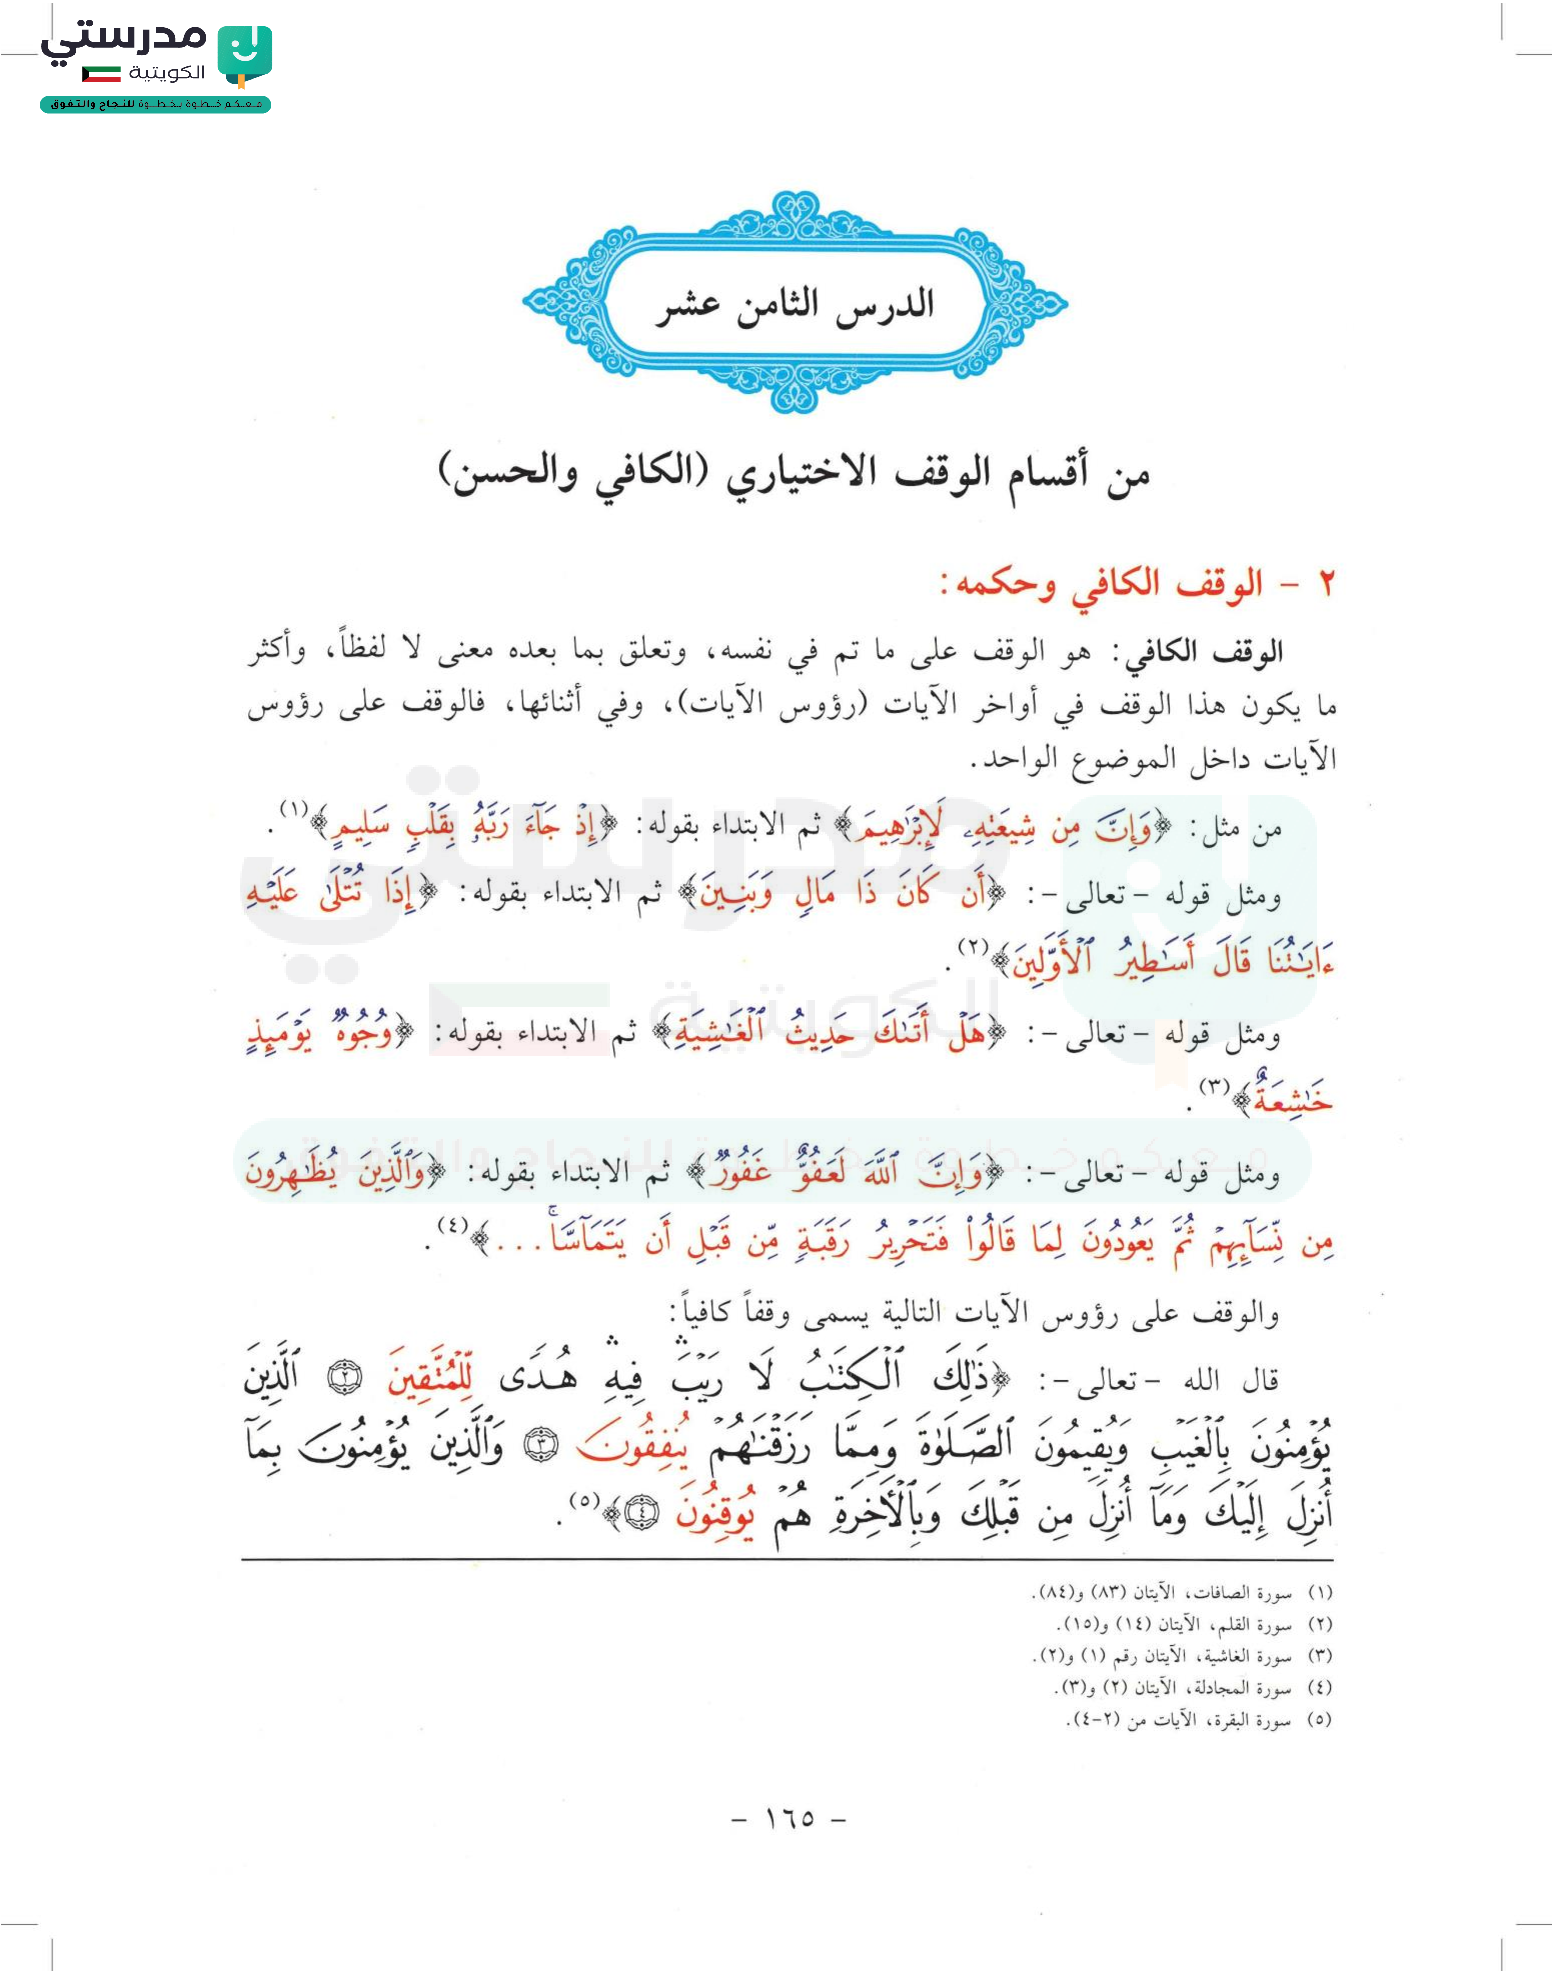 مدرستي
الكويتية
معكم خطوة بخطوة للنجاح والتفوق
الدرس الثامن عشر
من أقسام الوقف الاختياري (الكافي والحسن)
٢ - الوقف الكافي وحكمه:
الوقف الكافي: هو الوقف على ما تم في نفسه، وتعلق بما بعده معنى لا لفظاً، وأكثر
ما يكون هذا الوقف في أواخر الآيات (رؤوس الآيات)، وفي أثنائها، فالوقف على رؤوس
الآيات داخل الموضوع الواحد.
من مثل: ﴿وَإِنَّ مِن شِيعَتِهِۦ لَإِبْرَٰهِيمَ﴾ ثم الابتداء بقوله: ﴿إِذْ جَآءَ رَبَّهُۥ بِقَلْبٍ سَلِيمٍ﴾(١).
ومثل قوله -تعالى-: ﴿أَن كَانَ ذَا مَالٍ وَبَنِينَ﴾ ثم الابتداء بقوله: ﴿إِذَا تُتْلَىٰ عَلَيْهِ
ءَايَٰتُنَا قَالَ أَسَٰطِيرُ ٱلْأَوَّلِينَ﴾(٢).
ومثل قوله -تعالى-: ﴿هَلْ أَتَىٰكَ حَدِيثُ ٱلْغَٰشِيَةِ﴾ ثم الابتداء بقوله: ﴿وُجُوهٌ يَوْمَئِذٍ
خَٰشِعَةٌ﴾(٣).
ومثل قوله -تعالى-: ﴿وَإِنَّ ٱللَّهَ لَعَفُوٌّ غَفُورٌ﴾ ثم الابتداء بقوله: ﴿وَٱلَّذِينَ يُظَٰهِرُونَ
مِن نِّسَآئِهِمْ ثُمَّ يَعُودُونَ لِمَا قَالُوا۟ فَتَحْرِيرُ رَقَبَةٍ مِّن قَبْلِ أَن يَتَمَآسَّا ۚ...﴾(٤).
والوقف على رؤوس الآيات التالية يسمى وقفاً كافياً:
قال الله -تعالى-: ﴿ذَٰلِكَ ٱلْكِتَٰبُ لَا رَيْبَ ۛ فِيهِ ۛ هُدًى لِّلْمُتَّقِينَ ٢ ٱلَّذِينَ
يُؤْمِنُونَ بِٱلْغَيْبِ وَيُقِيمُونَ ٱلصَّلَوٰةَ وَمِمَّا رَزَقْنَٰهُمْ يُنفِقُونَ ٣ وَٱلَّذِينَ يُؤْمِنُونَ بِمَآ
أُنزِلَ إِلَيْكَ وَمَآ أُنزِلَ مِن قَبْلِكَ وَبِٱلْأٓخِرَةِ هُمْ يُوقِنُونَ ٤﴾(٥).
(١) سورة الصافات، الآيتان (٨٣) و(٨٤).
(٢) سورة القلم، الآيتان (١٤) و(١٥).
(٣) سورة الغاشية، الآيتان رقم (١) و(٢).
(٤) سورة المجادلة، الآيتان (٢) و(٣).
(٥) سورة البقرة، الآيات من (٢-٤).
- ١٦٥ -